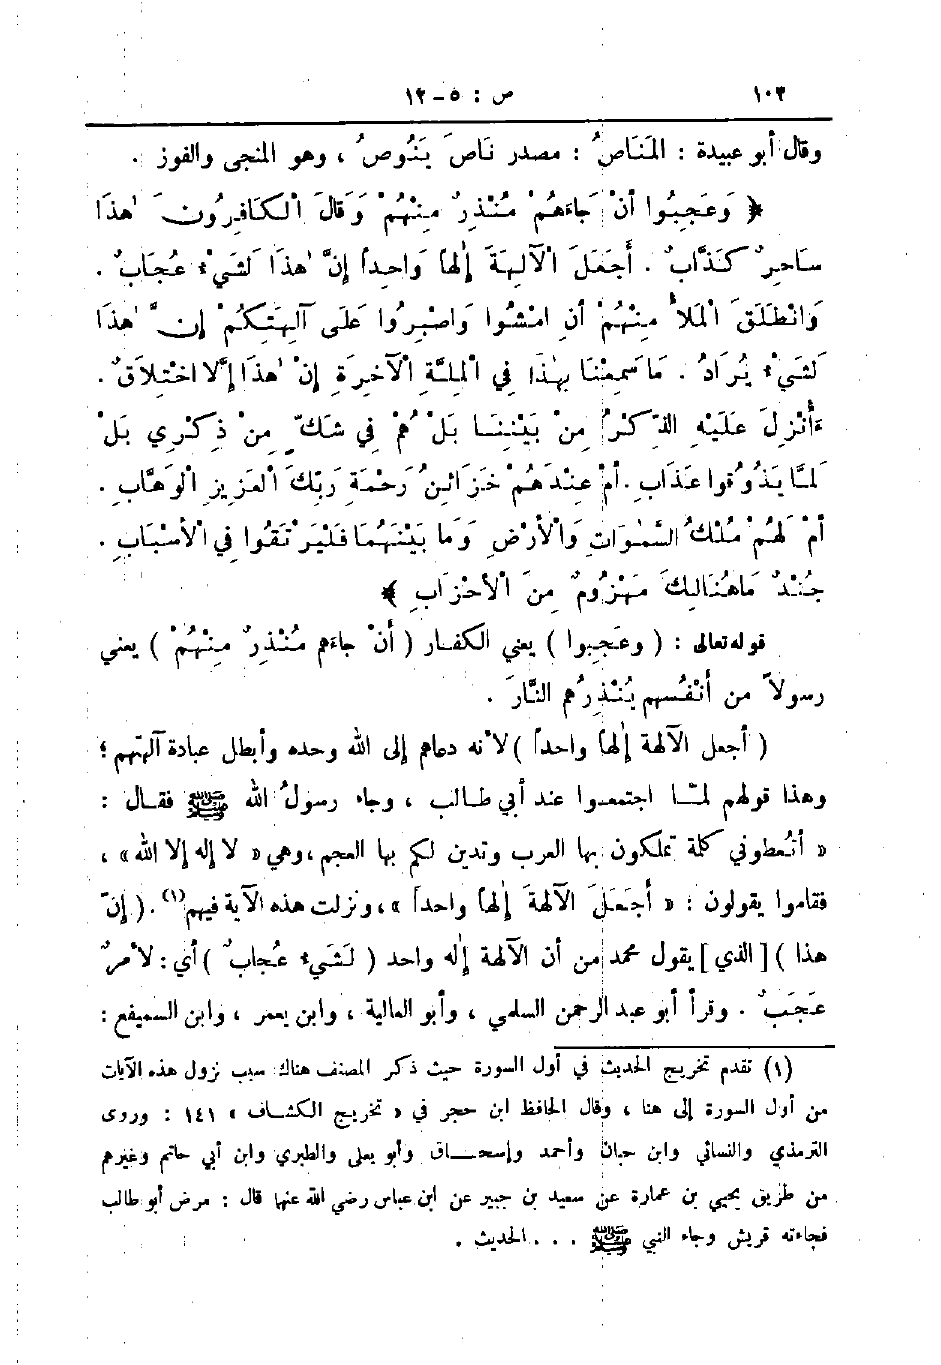 ١٠٣ ص : ٥ – ١٢
وقال أبو عبيدة : المَنَاصُ : مصدر نَاصَ يَنُوصُ ، وهو المنجى والفوز .
﴿ وَعَجِبُوا أَنْ جَاءَهُمْ مُنْذِرٌ مِنْهُمْ وَقَالَ الْكَافِرُونَ هٰذَا
سَاحِرٌ كَذَّابٌ . أَجَعَلَ الْآلِهَةَ إِلٰهًا وَاحِداً إِنَّ هٰذَا لَشَيْءٌ عُجَابٌ .
وَانْطَلَقَ الْمَلَأُ مِنْهُمْ أَنِ امْشُوا وَاصْبِرُوا عَلَى آلِهَتِكُمْ إِنَّ هٰذَا
لَشَيْءٌ يُرَادُ . مَا سَمِعْنَا بِهٰذَا فِي الْمِلَّةِ الْآخِرَةِ إِنْ هٰذَا إِلَّا اخْتِلَاقٌ .
ءَأُنْزِلَ عَلَيْهِ الذِّكْرُ مِنْ بَيْنِنَا بَلْ هُمْ فِي شَكٍّ مِنْ ذِكْرِي بَلْ
لَمَّا يَذُوقُوا عَذَابِ . أَمْ عِنْدَهُمْ خَزَائِنُ رَحْمَةِ رَبِّكَ الْعَزِيزِ الْوَهَّابِ .
أَمْ لَهُمْ مُلْكُ السَّمٰوَاتِ وَالْأَرْضِ وَمَا بَيْنَهُمَا فَلْيَرْتَقُوا فِي الْأَسْبَابِ .
جُنْدٌ مَاهُنَالِكَ مَهْزُومٌ مِنَ الْأَحْزَابِ ﴾
قوله تعالى : ( وعَجِبوا ) يعني الكفار ( أَنْ جاءَهم مُنْذِرٌ مِنْهُمْ ) يعني
رسولاً من أَنْفُسهم يُنْذِرُهم النَّارَ .
( أجعل الآلهة إلٰهاً واحداً ) لأنه دعاهم إلى الله وحده وأبطل عبادة آلهتهم ؛
وهذا قولهم لمّا اجتمعوا عند أبي طالب ، وجاء رسولُ الله ﷺ فقال :
« أتُعطوني كلمة تملكون بها العرب وتدين لكم بها العجم ، وهي « لا إله إلا الله » ،
فقاموا يقولون : « أَجَعَلَ الآلهةَ إلٰهاً واحداً » ، ونزلت هذه الآية فيهم(١) . ( إنّ
هذا ) [ الذي ] يقول محمد من أن الآلهة إلٰه واحد ( لَشَيْءٌ عُجابٌ ) أي : لأمرٌ
عَجَبٌ . وقرأ أبو عبد الرحمن السلمي ، وأبو العالية ، وابن يعمر ، وابن السميفع :
(١) تقدم تخريج الحديث في أول السورة حيث ذكر المصنف هناك سبب نزول هذه الآيات
من أول السورة إلى هنا ، وقال الحافظ ابن حجر في « تخريج الكشاف » ١٤١ : وروى
الترمذي والنسائي وابن حبان وأحمد وإسحـاق وأبو يعلى والطبري وابن أبي حاتم وغيرهم
من طريق يحيى بن عمارة عن سعيد بن جبير عن ابن عباس رضي الله عنها قال : مرض أبو طالب
فجاءته قريش وجاء النبي ﷺ . . . الحديث .